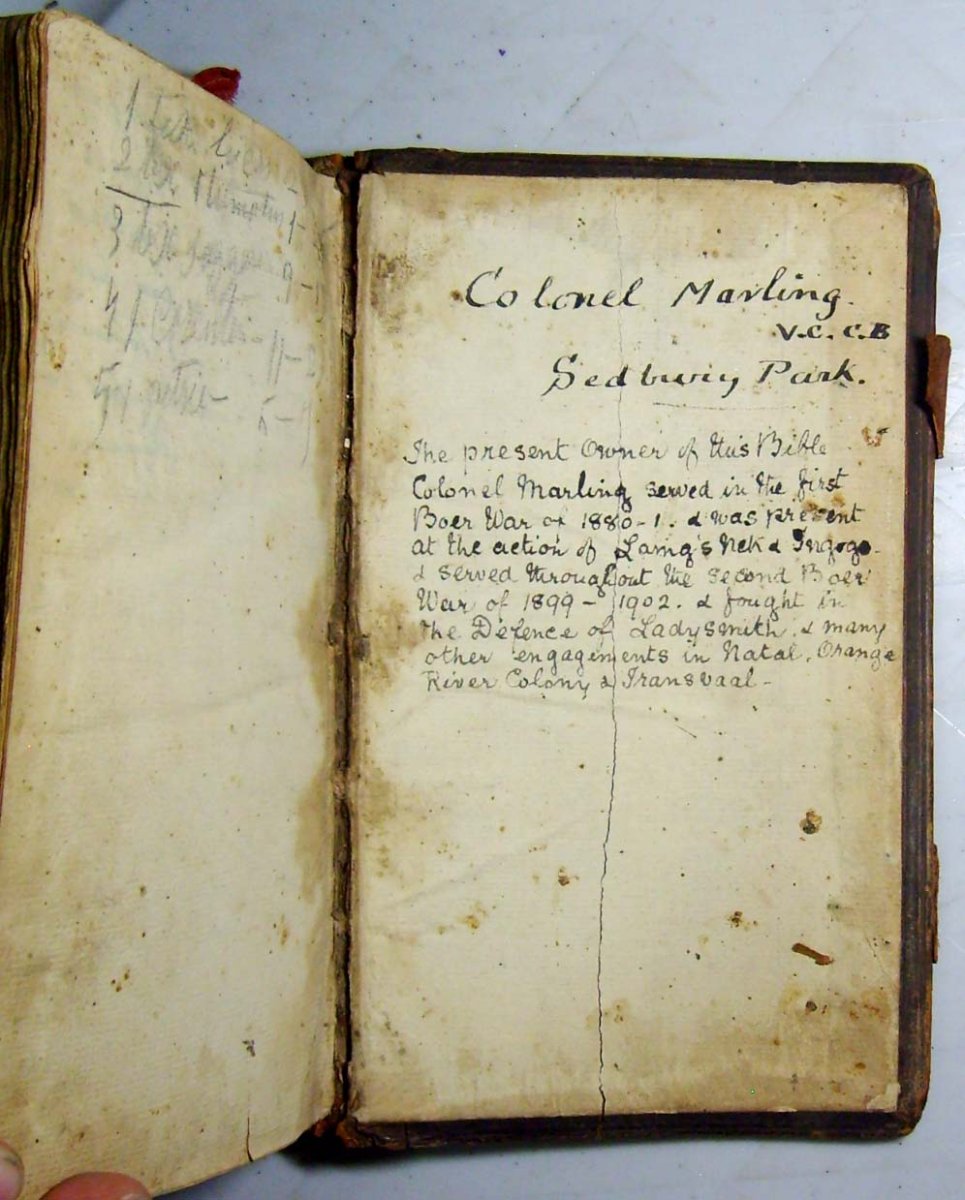 1
2
3
4
Colonel Marling.
V.C. C.B
Sedbury Park.
The present Owner of this Bible
Colonel Marling served in the first
Boer War of 1880-1. & was present
at the action of Laing's Nek & Ingogo.
& served throughout the second Boer
War of 1899 - 1902. & fought in
the Defence of Ladysmith. & many
other engagments in Natal, Orange
River Colony & Transvaal -